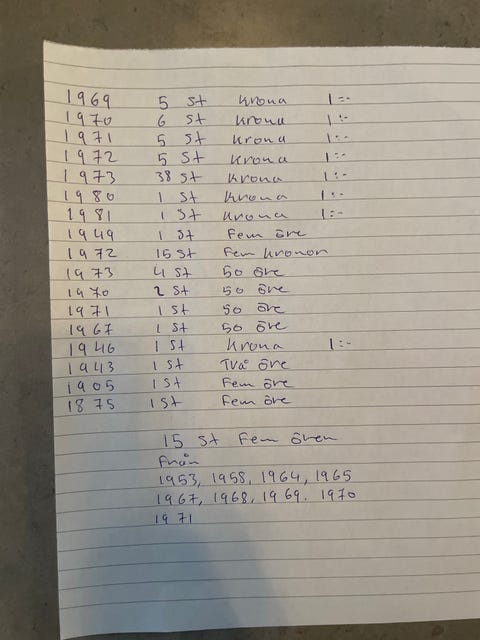 1969 5 st krona 1:-
1970 6 st krona 1:-
1971 5 st krona 1:-
1972 5 st krona 1:-
1973 38 st krona 1:-
1980 1 st krona 1:-
1981 1 st krona 1:-
1949 1 st Fem öre
1972 15 st Fem kronor
1973 4 st 50 öre
1970 2 st 50 öre
1971 1 st 50 öre
1967 1 st 50 öre
1946 1 st krona 1:-
1943 1 st Två öre
1905 1 st Fem öre
1875 1 st Fem öre
15 st Fem ören
Från
1953, 1958, 1964, 1965
1967, 1968, 1969. 1970
1971